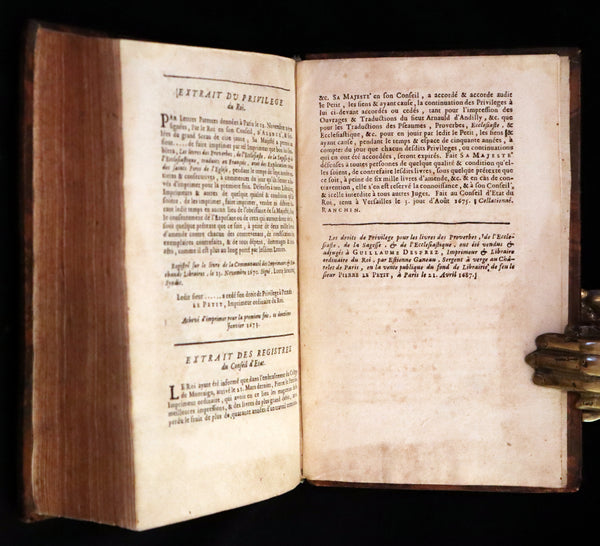 EXTRAIT DU PRIVILEGE
du Roi.
PAR Lettres Patentes données à Paris le 13. Novembre 1672
signées, Par le Roi en son Conseil, D'ALENCÉ, & sel-
lées du grand Sceau de cire jaune, Sa Majesté a permis à
. . . . . de faire imprimer par tel Imprimeur que bon lui sem-
blera, Les livres des Proverbes, de l'Ecclesiaste, de la Sagesse &
de l'Ecclesiastique, traduits en François, avec des Explications
des saints Peres de l'Eglise, pendant le temps de
& consecutives, à commencer du jour que chacun
vres d'imprimer pour la premiere fois. Defenses à tous Libraires
des livres, & autres de quelque qualité & condition qu'ils
soient, de les imprimer, faire imprimer, vendre ni debiter en
aucun lieu de l'obeïssance de Sa Majesté, sans
le consentement de l'Exposant ou de ceux qui auront droit de lui,
sous quelque pretexte que ce soit, à peine de deux mil livres
d'amende contre chacun des contrevenans, de confiscation des
exemplaires contrefaits, & de tous dépens, dommages &
comme il est plus au long porté par lesdites Lettres.
Registré sur le livre de la Communauté des Imprimeurs & Mar-
chands Libraires, le 23. Novembre 1672. Signé
Syndic.
Ledit sieur . . . . . a cedé son droit de Privilege à Pierre
LE PETIT, Imprimeur ordinaire du Roi.
Achevé d'imprimer pour la premiere fois, le douziéme
Janvier 1673.
EXTRAIT DES REGISTRES
du Conseil d'Etat.
LE Roi ayant été informé que dans l'embrasement du College
de Montaigu, arrivé le 21. Mars dernier, Pierre le Petit son
Imprimeur ordinaire, qui avoit en ce lieu ses magasins des
meilleures impressions, & des livres du plus grand debit, avoit
perdu le fruit de plus de quarante années d'un travail continuel,
&c. SA MAJESTE' en son Conseil, a accordé & accorde audit
le Petit, les siens & ayant cause, la continuation des Privileges à
lui ci-devant accordés ou cedés, tant pour l'impression des
Ouvrages & Traductions du Sieur Arnauld d'Andilly, &c. que
pour les Traductions des Pseaumes, Proverbes, Ecclesiaste, &
Ecclesiastique, &c. pour en jouir par ledit le Petit, les siens &c
ayant cause, pendant le temps & espace de cinquante années, à
compter du jour que chacun desdits Privileges, ou continuations
qui en ont été accordées, seront expirés. Fait SA MAJESTE'
defenses à toutes personnes de quelque qualité & condition qu'el-
les soient, de contrefaire lesdits livres, sous quelque pretexte que
ce soit, à peine de six mille livres d'amende, &c. & en cas de con-
travention, elle s'en est reservé la connoissance, & à son Conseil,
& icelle interdite à tous autres Juges. Fait au Conseil d'Etat du
Roi, tenu à Versailles le 5. jour d'Août 1675. Collationné,
RANCHIN.
Les droits de Privilege pour les livres des Proverbes, de l'Eccle-
siaste, de la Sagesse, & de l'Ecclesiastique, ont été vendus &
adjugés à GUILLAUME DESPREZ, Imprimeur & Libraire
ordinaire du Roi, par Estienne Ganeau, Sergent à verge au Châ-
telet de Paris, en la vente publique du fond de Librairie, de feu le
sieur PIERRE LE PETIT, à Paris le 21. Avril 1687.